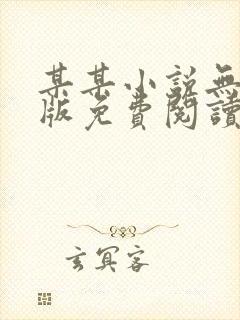 某某小説無
版免費閱讀
玄冥客